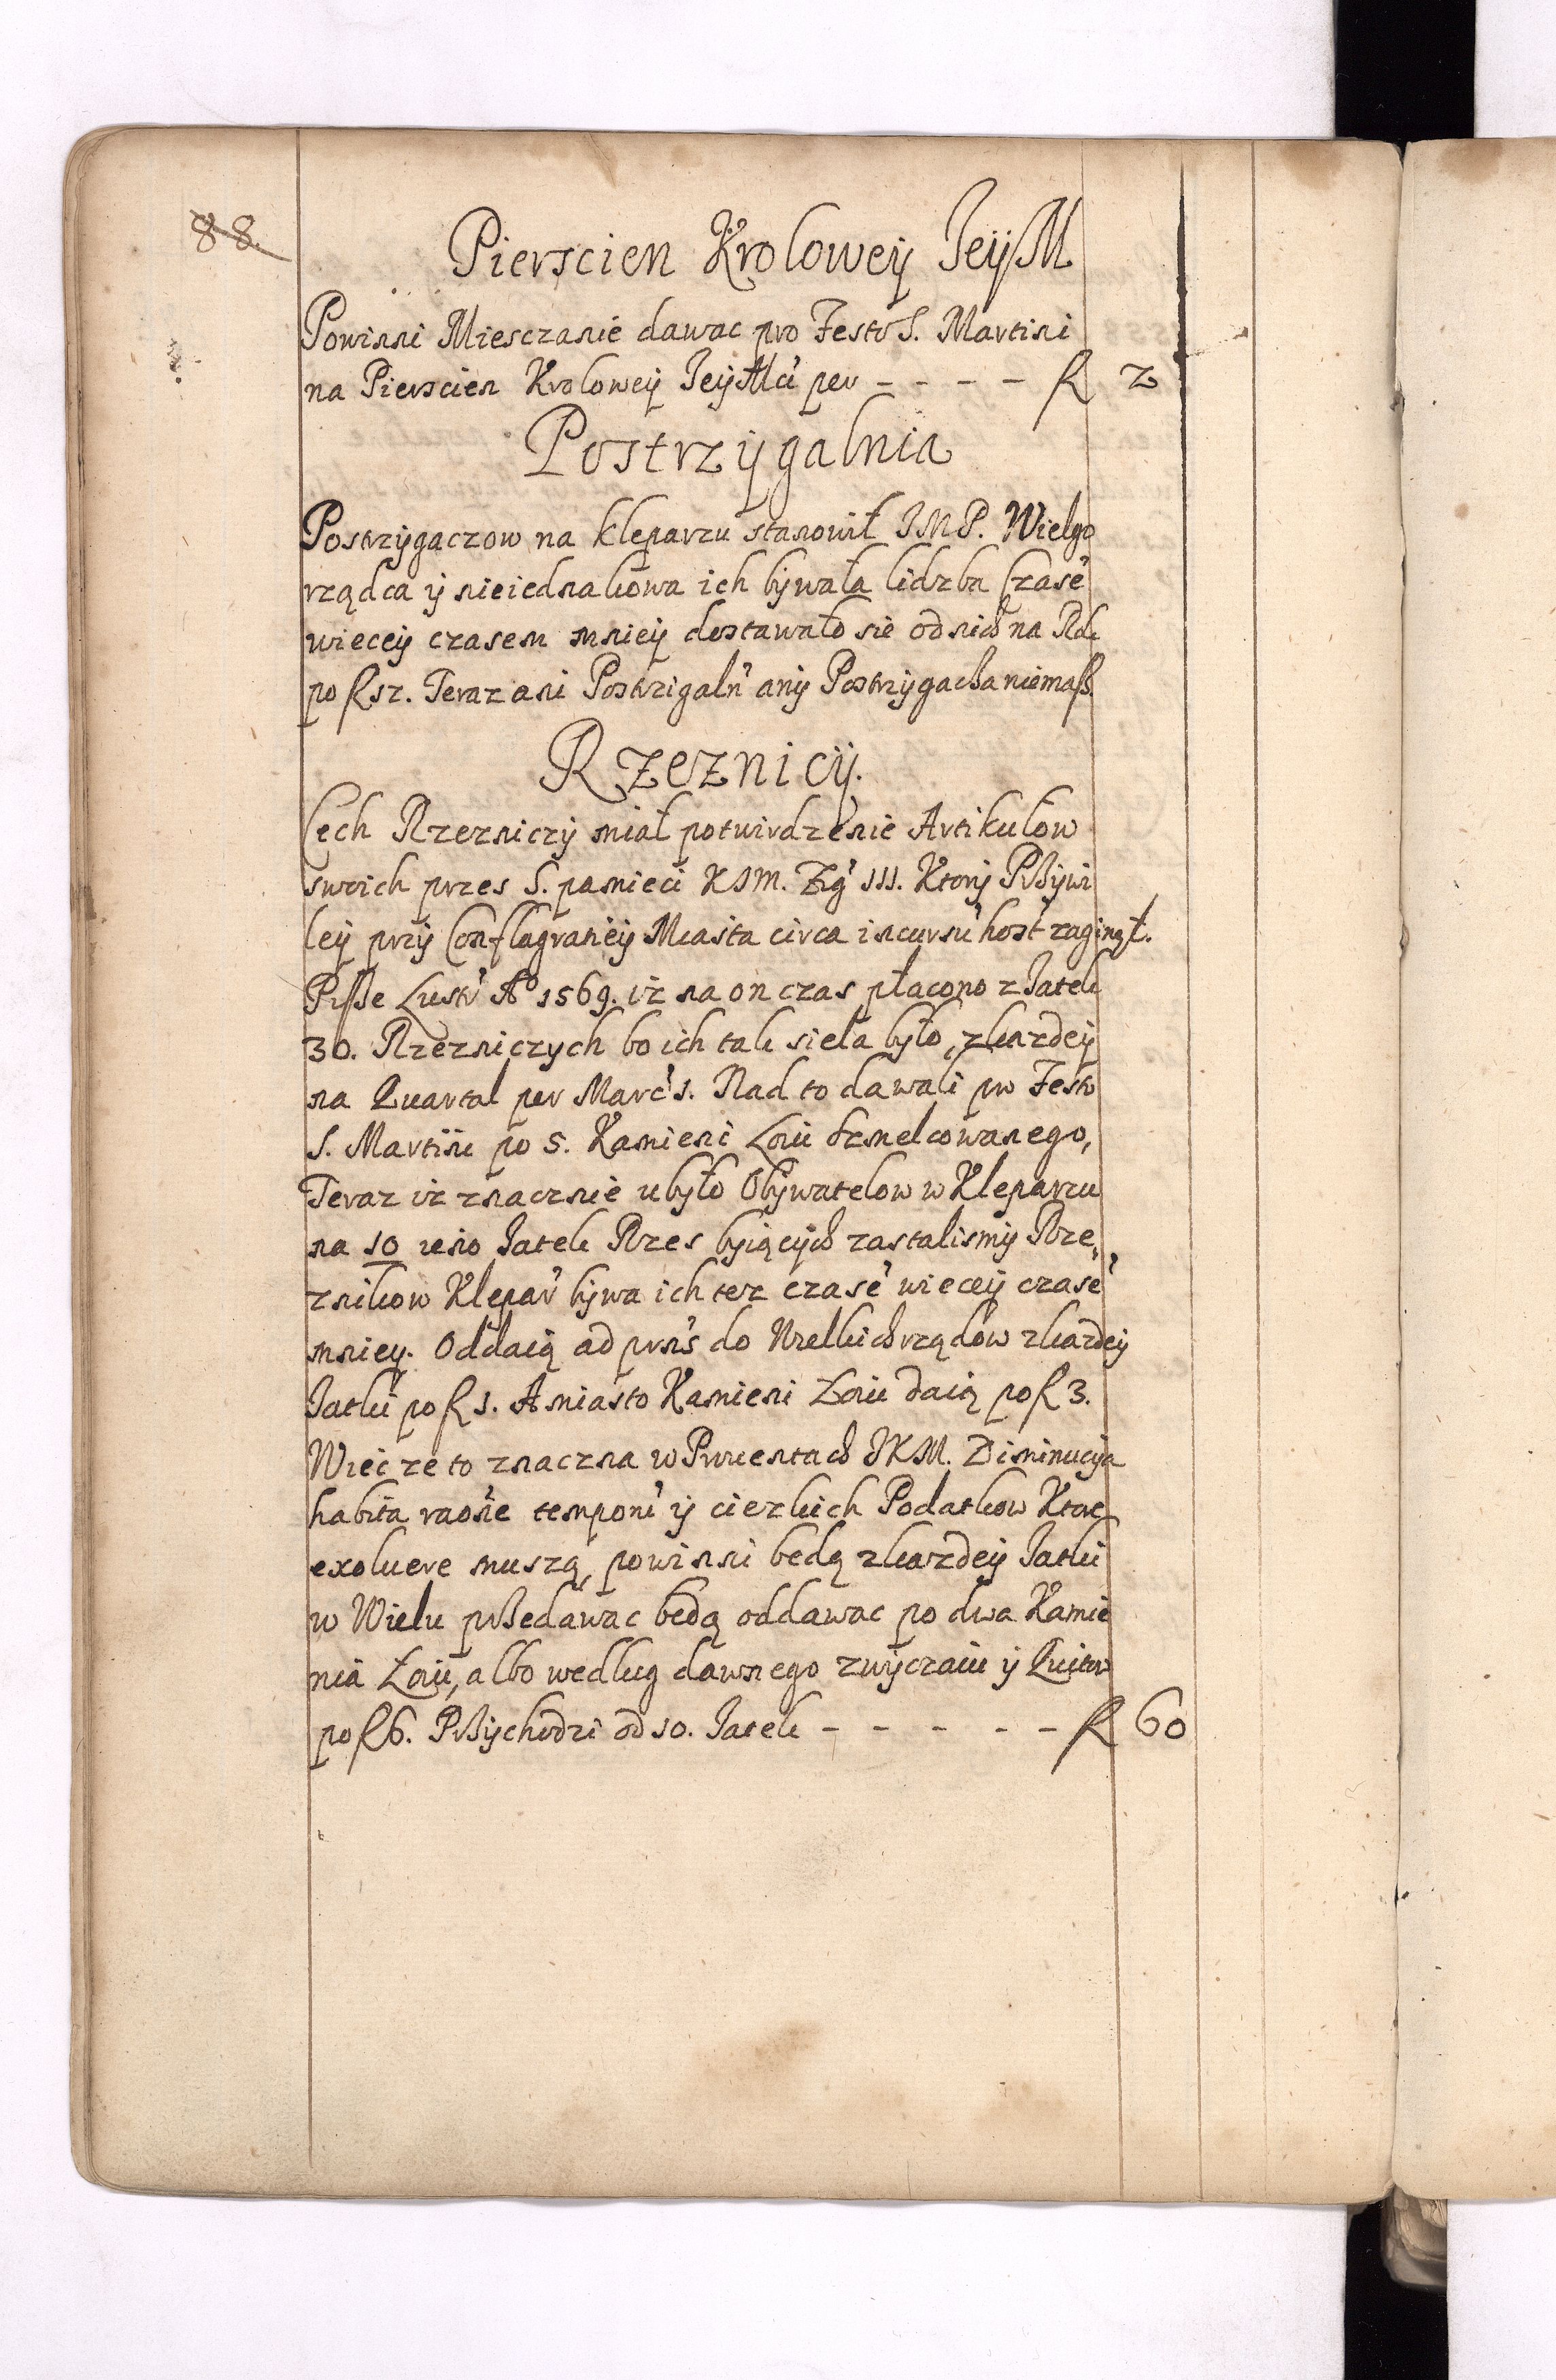 88.
Pierscien Krolowey JeyM
Powinni Miesczanie dawac pro Festo S. Martini
na Pierscien Krolowey JeyMci per - - - - fl 2
Postrzygalnia
Postrzygaczow na kleparzu stanowił JMP. Wielgo
rządca y nieiednakowa ich bywała lidzba Czasē
wiecey czasem mniey dostawało sie od nich na Rok
po fl 12. Teraz ani Postrzigaln̄ any Postrzygacha niemasz
Rzeznicy.
Cech Rzezniczy miał potwirdzenie Artikułow
swoich przes S. pamieci KJM. Zyg̃ III. Ktory Przywi
ley przy Conflagratiey Miasta circa incursū host zaginął.
Pisze Lustr̃ Aº 1569. iz na on czas płacono z Jatek
30. Rzezniczych bo ich tak siela było, z kazdey
na Quartal per Marc̃ 1. Nad to dawali pro Festo
S. Martini po 5. Kamieni Łoiu szmelcowanego,
Teraz iz znacznie ubyło Obywatelow w Kleparzu
na 10 ieno Jatek Rzes byiących zastalismy Rze,
znikow Klepar̃ bywa ich tez czasē wiecey czasē
mniey. Oddaią ad prn̄s do Wielkich rządow z kazdey
Jatki po fl 1. A miasto Kamieni Łoiu daią po fl 3.
Wiec ze to znaczna w Prouentach JKM. Diminucya
habita raōne temporū y cieżkich Podatkow Ktore
exoluere muszą, powinni bedą z kazdey Jatki
w Wielu przedawac bedą oddawac po dwa Kamie
nia Łoiu, albo wedlug dawnego zwyczaiu y Quitow
po fl 6. Przychodzi od 10. Jatek - - - - - fl 60